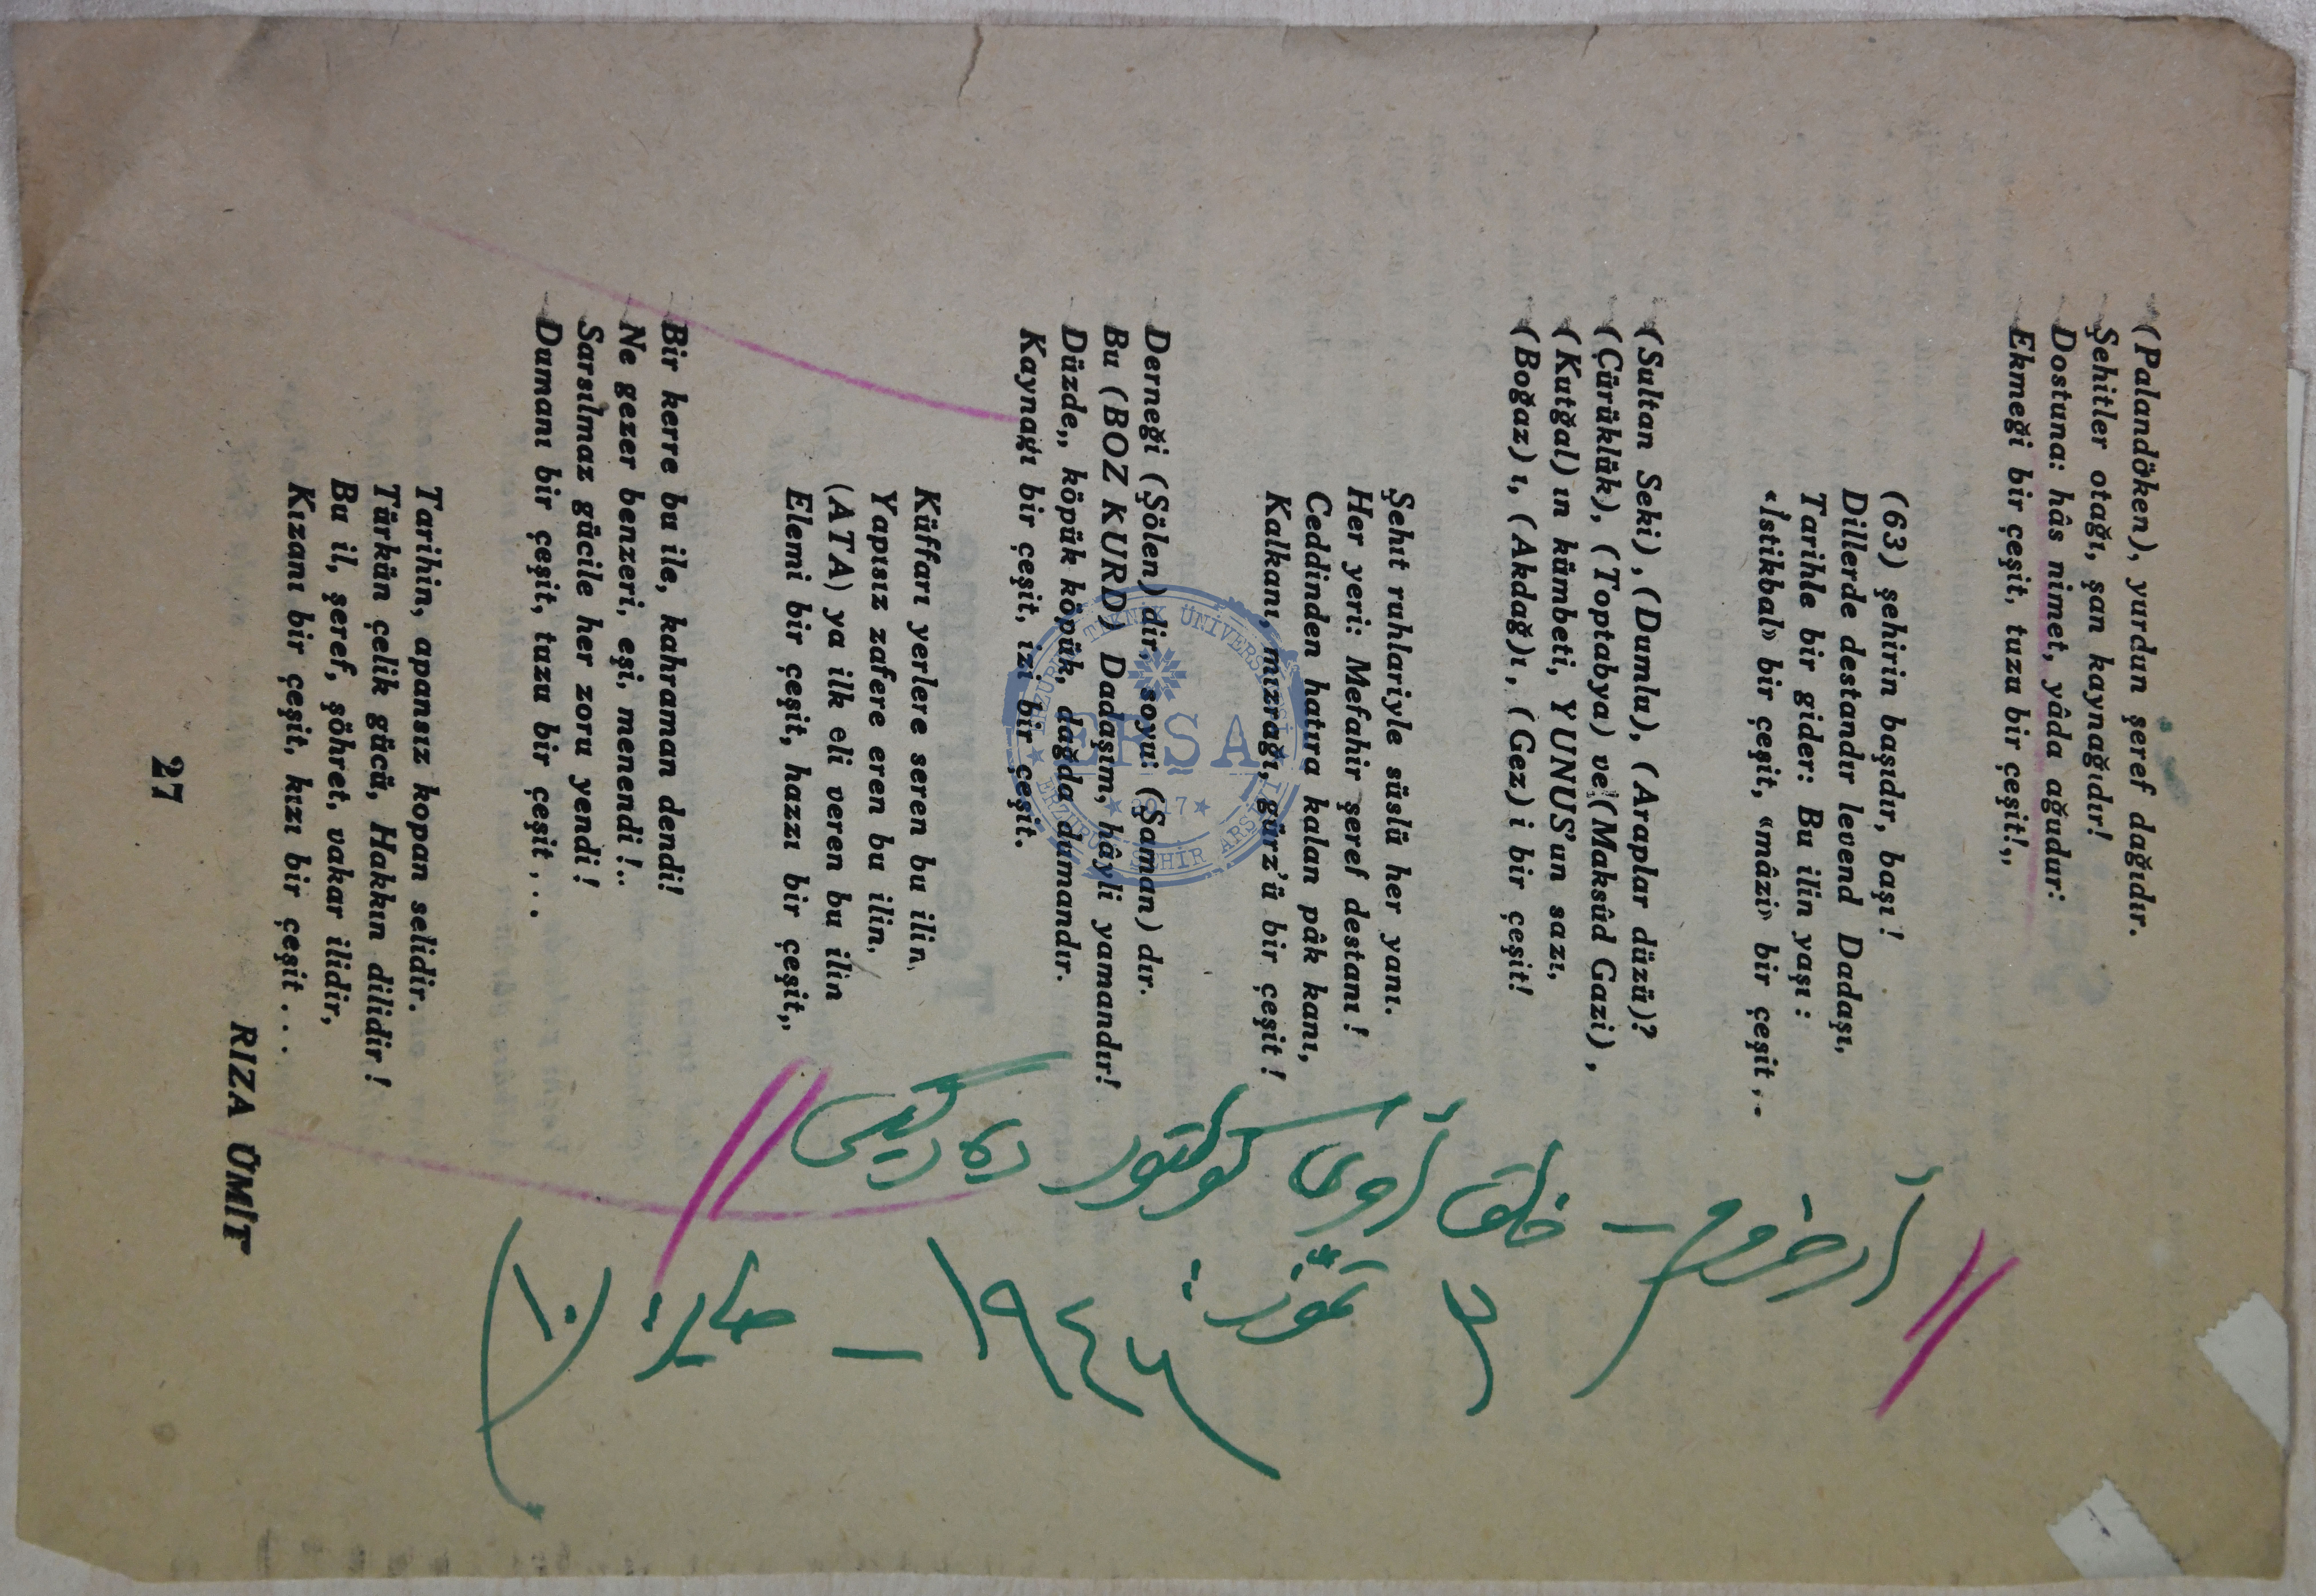 (Palandöken), yurdun şeref dağıdır.
Şehitler otağı, şan kaynağıdır!
Dostuna: hâs nimet, yâda ağudur:
Ekmeği bir çeşit, tuzu bir çeşit!,,
(63) şehirin başıdır, başı !
Dillerde destandır levend Dadaşı,
Tarihle bir gider: Bu ilin yaşı :
«İstikbal» bir çeşit, «mâzi» bir çeşit,.-
(Sultan Seki), (Dumla), (Araplar düzü)?
(Çürüklük), (Toptabya) ve (Maksûd Gazi),
(Kutğal) ın kümbeti, YUNUS'un sazı,
(Boğaz) ı, (Akdağ) ı, (Gez) i bir çeşit!
Şehıt ruhlariyle süslü her yanı.
Her yeri: Mefahir şeref destanı !
Ceddinden hatıra kalan pâk kanı,
Kalkanı, mızrağı, gürz'ü bir çeşit !
Derneği (Şölen) dir, soyu: (Şaman) dır.
Bu (BOZ KURD) Dadaşım, hâyli yamandır!
Düzde,, köpük köpük, dağda dumandır.
Kaynağı bir çeşit, izi bir çeşit.
Küffarı yerlere seren bu ilin,
Yapısız zafere eren bu ilin,
(ATA) ya ilk eli veren bu ilin
Elemi bir çeşit, hazzı bir çeşit,,
Bir kerre bu ile, kahraman dendi!
Ne gezer benzeri, eşi, menendi !..
Sarsılmaz gücile her zoru yendi !
Dumanı bir çeşit, tuzu bir çeşit ,..
Tarihin, apansız kopan selidir.
Türkün çelik gücü, Hakkın dilidir !
Bu il, şeref, şöhret, vakar ilidir,
Kızanı bir çeşit, kızı bir çeşit . . .
RIZA ÜMİT
27
أرضروم – خلق أوى كولتور دركيسى
تموز:
TEKNİK ÜNİVERSİTESİ
ERŞA
2017
ERZURUM ŞEHİR ARŞİVİ